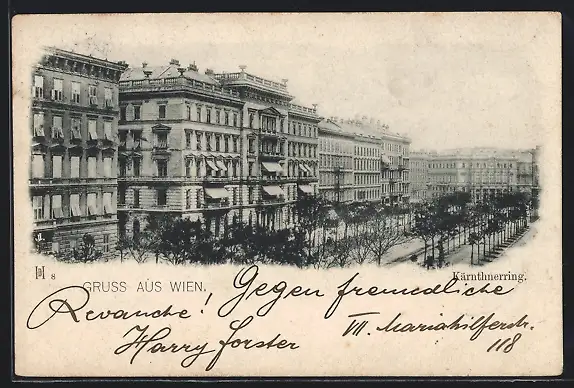 Kärnthnerring.
DH 8
GRUSS AUS WIEN.
Revanche! Gegen freundliche
Harry Forster
VII. Mariahilferstr.
118